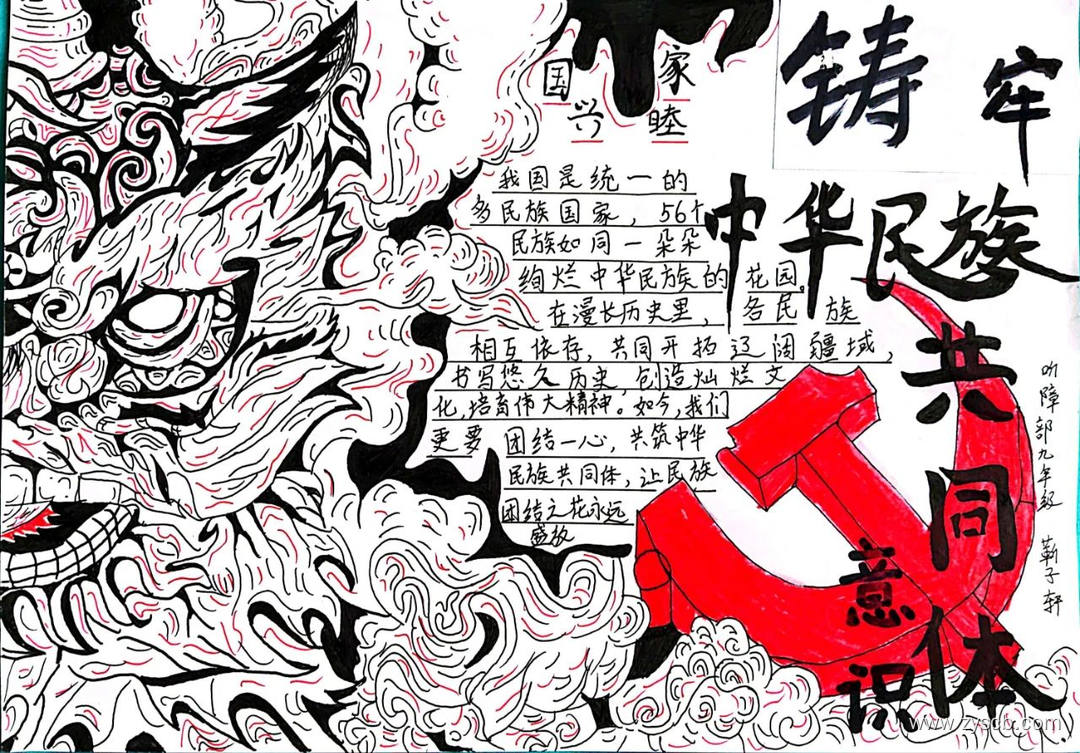 铸牢
中华民族
共同体
意识
国家
兴睦
我国是统一的
多民族国家，56个
民族如同一朵朵
绚烂中华民族的花园。
在漫长历史里，各民族
相互依存，共同开拓辽阔疆域，
书写悠久历史，创造灿烂文
化，培育伟大精神。如今，我们
更要团结一心，共筑中华
民族共同体，让民族
团结之花永远
盛放
听障部九年级 靳子轩
www.zyscb.com